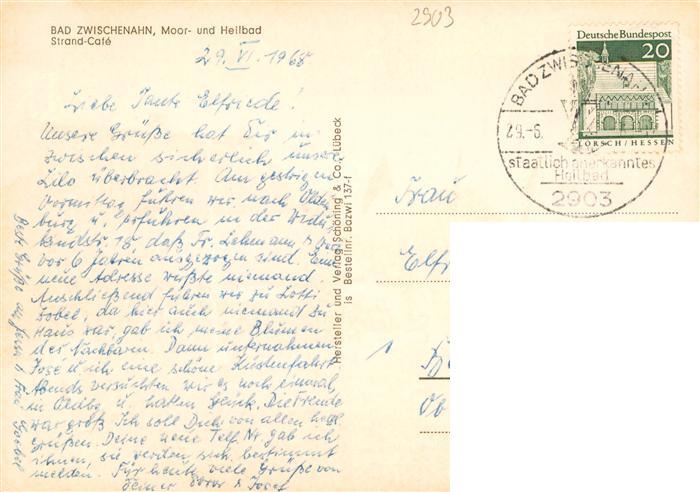 2903
BAD ZWISCHENAHN, Moor- und Heilbad
Strand-Café
29. VI. 1968
Liebe Tante Elfriede!
Unsere Grüße hat Dir in
zwischen sicherlich unsere
Lilo überbracht. Am gestrigen
Vormittag fuhren wir nach Olden
burg u. erfuhren in der
15, daß Fr. Lehmann
vor 6 Jahren ausgezogen sind. Eine
neue Adresse wußte niemand.
Anschließend fuhren wir zu Lotti
Zobel, da hier auch niemand zu
Haus war, gab ich meine Blumen
der Nachbarin. Dann unternahmen
José u. ich eine schöne Küstenfahrt.
Abends versuchten wir es noch einmal
in Oldbg u. hatten Glück. Die Freude
war groß. Ich soll Dich von allen herzl.
grüßen. Deine neue Telf. Nr. gab ich
ihnen, sie werden sich bestimmt
melden. Für heute viele Grüße von
Deiner u. Josef
Beste Grüße an Frau
Hersteller und Verlag Schöning & Co., Lübeck
is Bestellnr. Bazwi 137-f
Deutsche Bundespost
20
LORSCH/HESSEN
BAD ZWISCHENAHN
29.-6.
staatlich anerkanntes
Heilbad
2903
Frau
Elfr